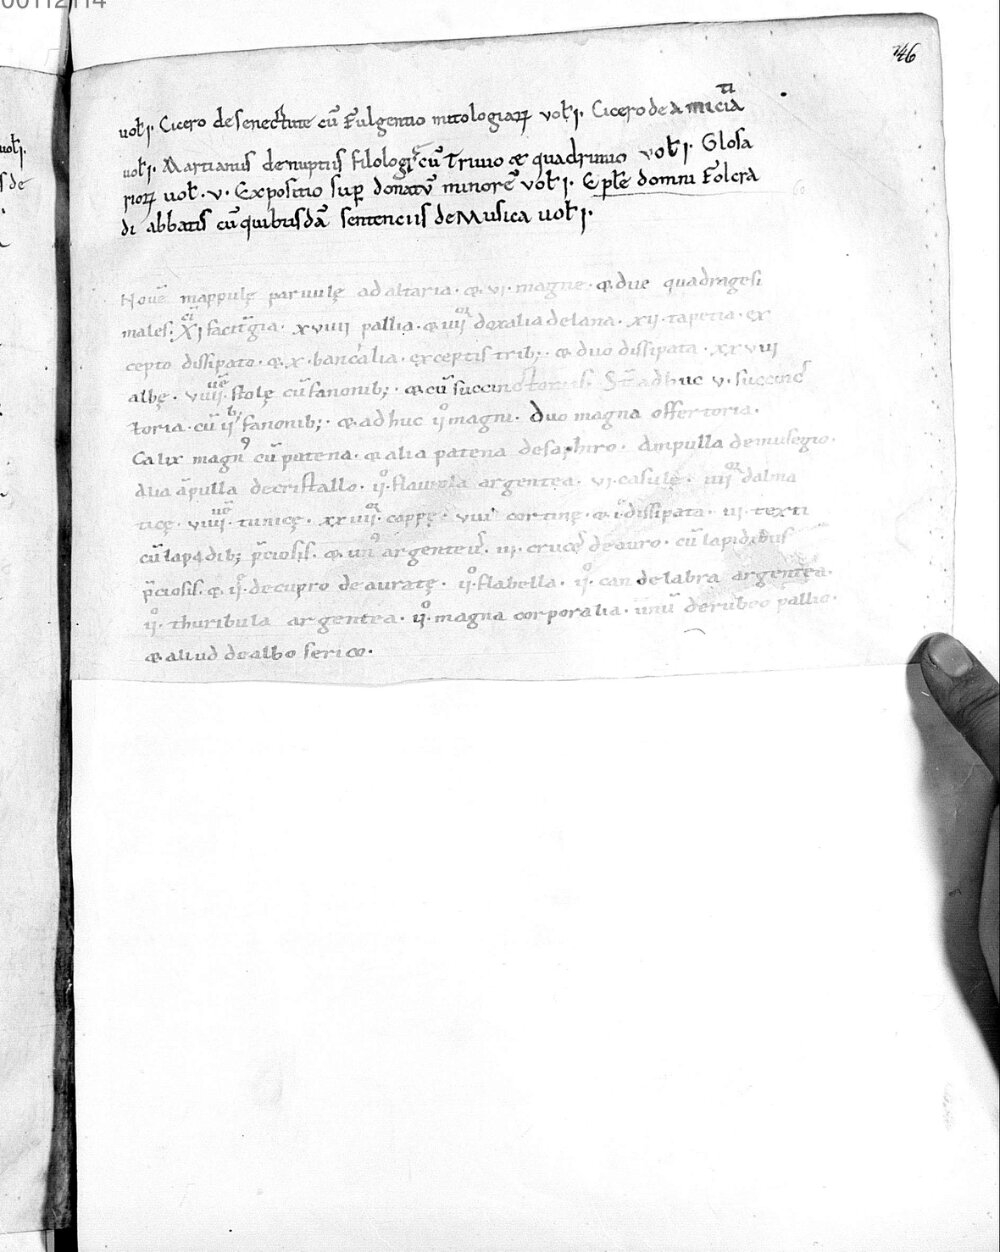 00112114
146
uoł. I. Cicero de senectute cū Fulgentio mitologiaꝝ voł. I. Cicero de amicitia
uoł. I. Martianus de nuptiis filologię cū triuio & quadriuio voł. I. Glosa
rioꝝ uoł. v. Expositio sup donatū minorē voł. I. Epłe domni Folcra
di abbatis cū quibusdā sententiis de Musica uoł. I.
Nouē mappulę paruulę ad altaria. & vi. magne. & due quadragesi
males. XI facit̄gia. xviiii pallia. & iiiior dorsalia de lana. xii. tapetia. ex
cepto dissipato. & x. bancalia. exceptis trib; & duo dissipata. xxviii
albę. viiiiuē stolę cū fanonib; & cū succinctoriis. S̄t adhuc v. succinc
toria. cū iib; fanonib;. & adhuc iio magni. Duo magna offertoria.
Calix magn9 cū patena. & alia patena de saphiro. Ampulla de musegio.
Alia āpulla de cristallo. iio. argentea. vi. casulę. iiiior dalma
ticę. viiiiuē. tunicę. xxiiiior cappę. viii cortinę. & i. dissipata. iii. texti
cū lapidib; p̄ciosis. & un9 argenteus. iii. crucęs de auro. cū lapidibus
p̄ciosis. & iię. de cupro deauratę. iio. flabella. iio. candelabra argentea.
iio. thuribula argentea. iio. magna corporalia. unū de rubeo pallio.
& aliud de albo serico.